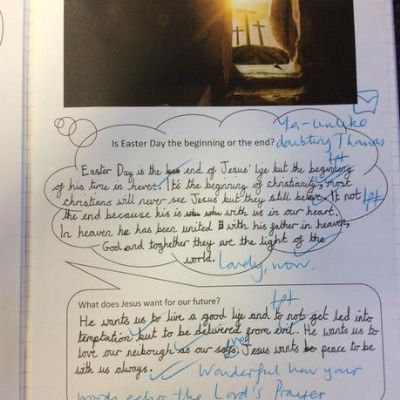 Yes - unlike
Is Easter Day the beginning or the end? doubting Thomas
Easter Day is the end of Jesus' life but the beginning
of his time in heven. It's the begenning of christianity, most
christians will never see Jesus but they still believe. It not
the end because his is with us in our heart.
In heaven he has been united with his father in heaven,
God and toghether they are the light of the
world. Lovely, wow.
What does Jesus want for our future?
He wants us to live a good life and to not get led into
temptation but to be delivered from evil. He wants us to
love our neibough as our Jesus wants peace to be
with us always. Wonderful how your
words echo the Lord's Prayer